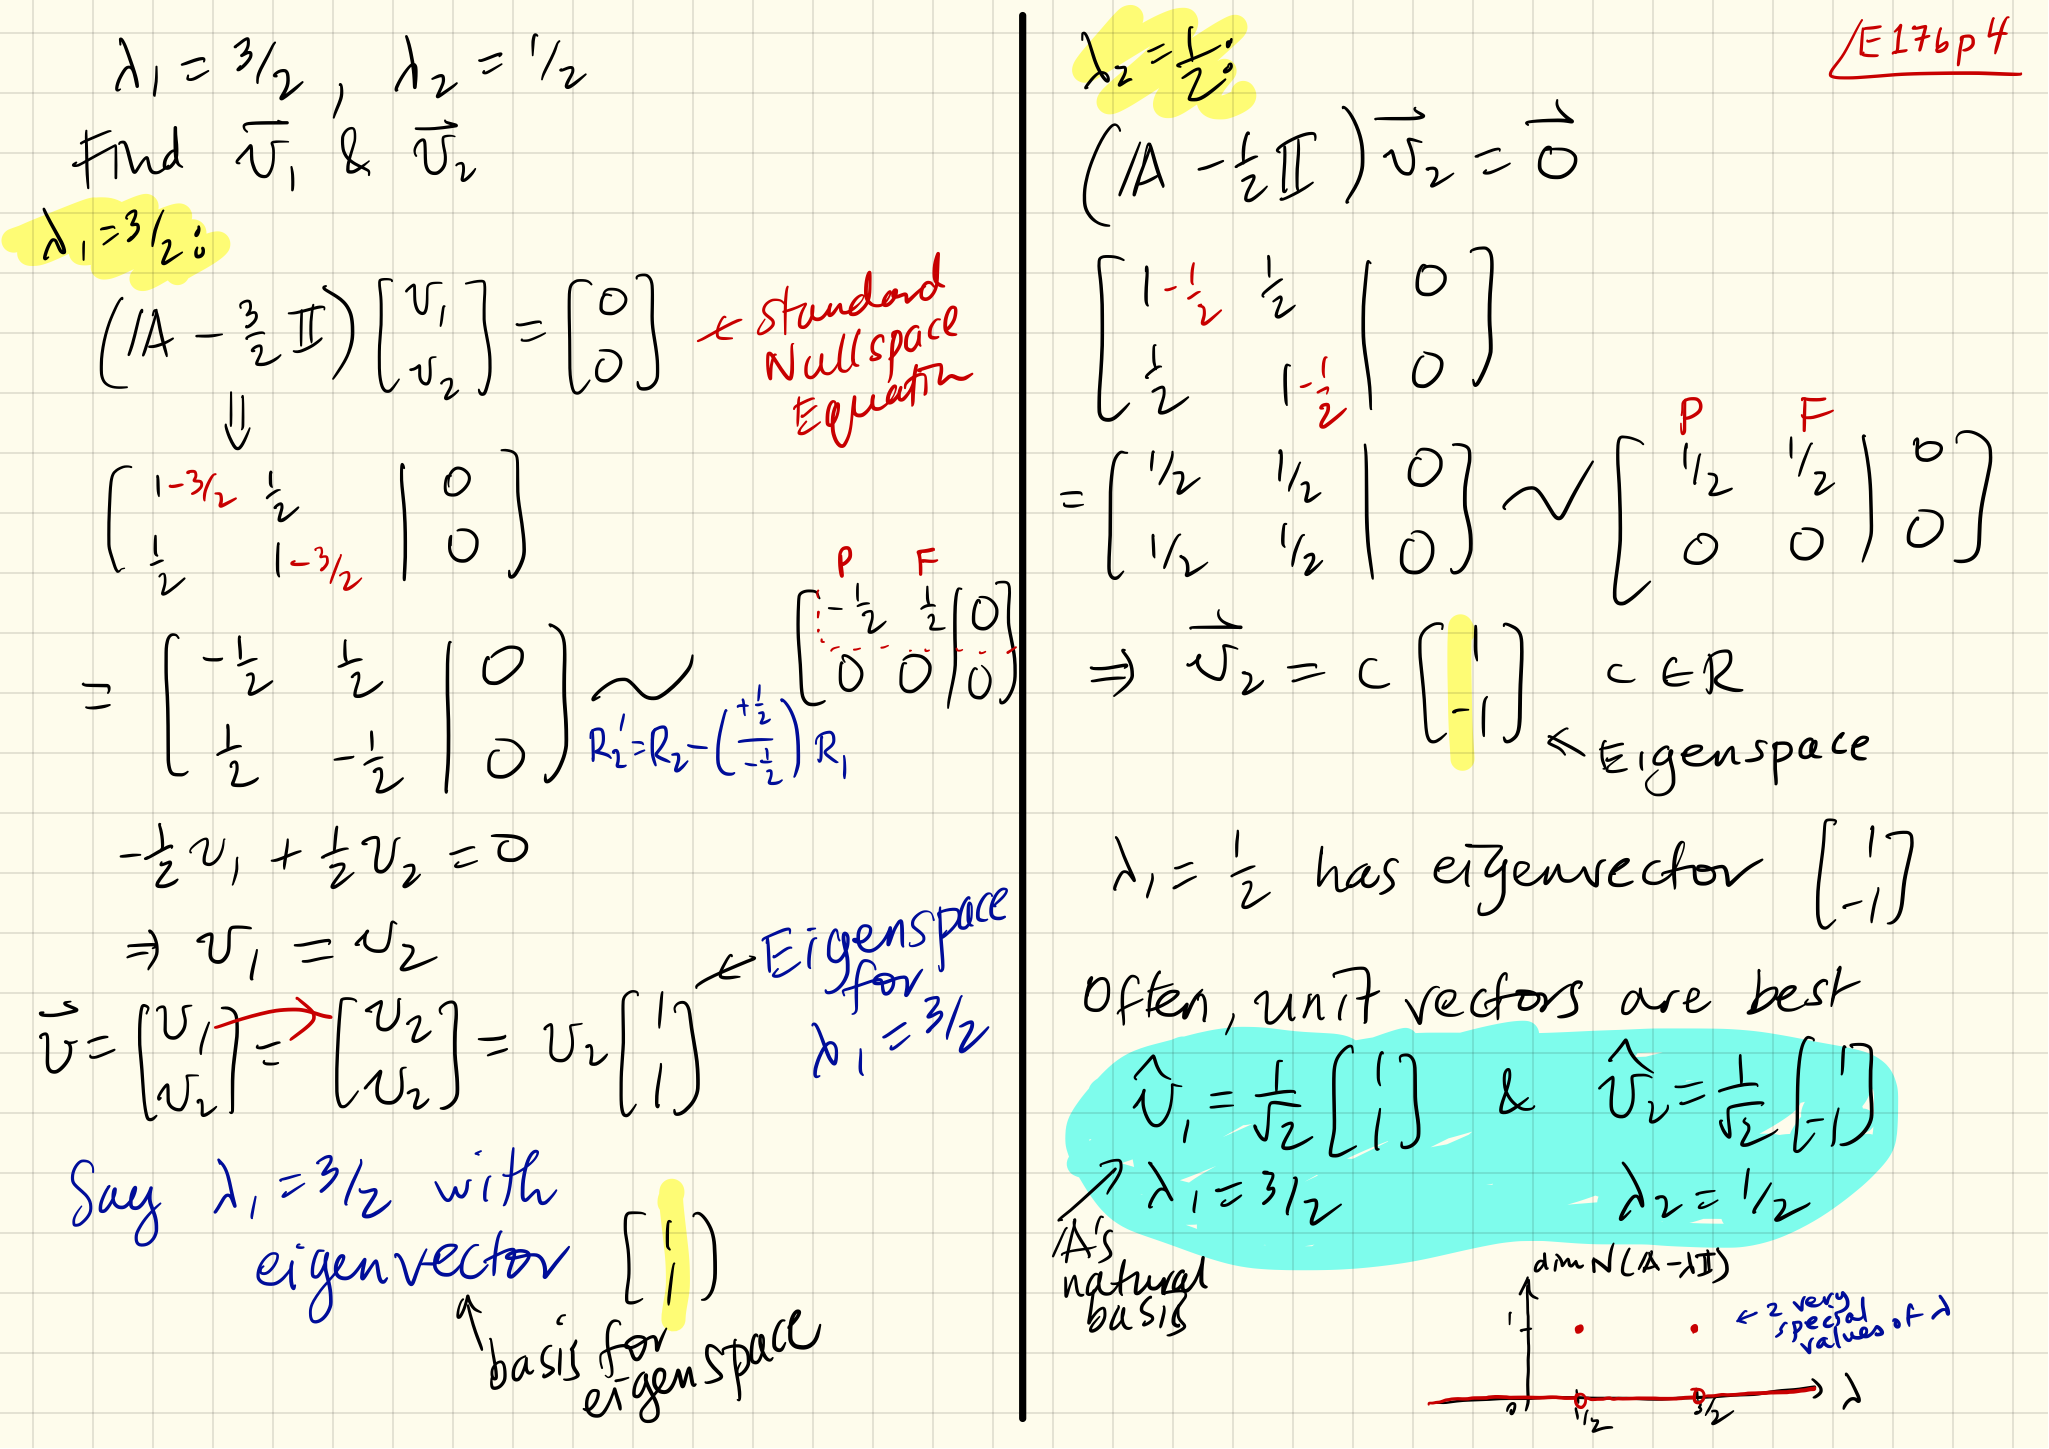 λ₁ = 3/2 , λ₂ = 1/2
Find v⃗₁ & v⃗₂
λ₁ = 3/2 :
(𝔸 - 3/2 𝕀) [v₁ v₂] = [0 0] ← Standard Nullspace Equatin
⇓
[1-3/2 1/2 | 0
1/2 1-3/2 | 0]
= [-1/2 1/2 | 0
1/2 -1/2 | 0] ~
R₂' = R₂ - (+1/2 / -1/2) R₁
P F
[-1/2 1/2 | 0
0 0 | 0]
-1/2 v₁ + 1/2 v₂ = 0
⇒ v₁ = v₂
v⃗ = [v₁ v₂] = [v₂ v₂] = v₂ [1 1]
← Eigenspace
for
λ₁ = 3/2
Say λ₁ = 3/2 with
eigenvector [1 1]
↑ basis for
eigenspace
E176p4
λ₂ = 1/2 :
(𝔸 - 1/2 𝕀) v⃗₂ = 0⃗
[1-1/2 1/2 | 0
1/2 1-1/2 | 0]
= [1/2 1/2 | 0
1/2 1/2 | 0] ~
P F
[1/2 1/2 | 0
0 0 | 0]
⇒ v⃗₂ = c [1 -1] c ∈ R
← Eigenspace
λ₁ = 1/2 has eigenvector [1 -1]
Often, unit vectors are best
v̂₁ = 1/√2 [1 1] & v̂₂ = 1/√2 [1 -1]
λ₁ = 3/2 λ₂ = 1/2
𝔸's
natural
basis
dim N(𝔸-λ𝕀)
1
← 2 very
special
values of λ
0 1/2 3/2 λ